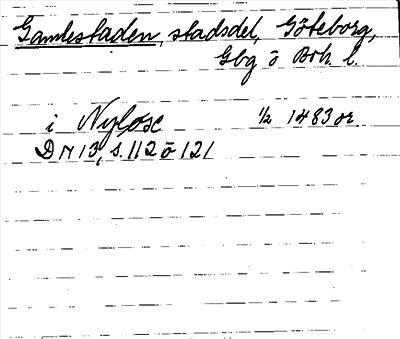 Gamlestaden, stadsdel, Göteborg,
Gbg o Boh. l.
i Nylöse 1/2 1483 or.
DN 13, s. 112 o 121